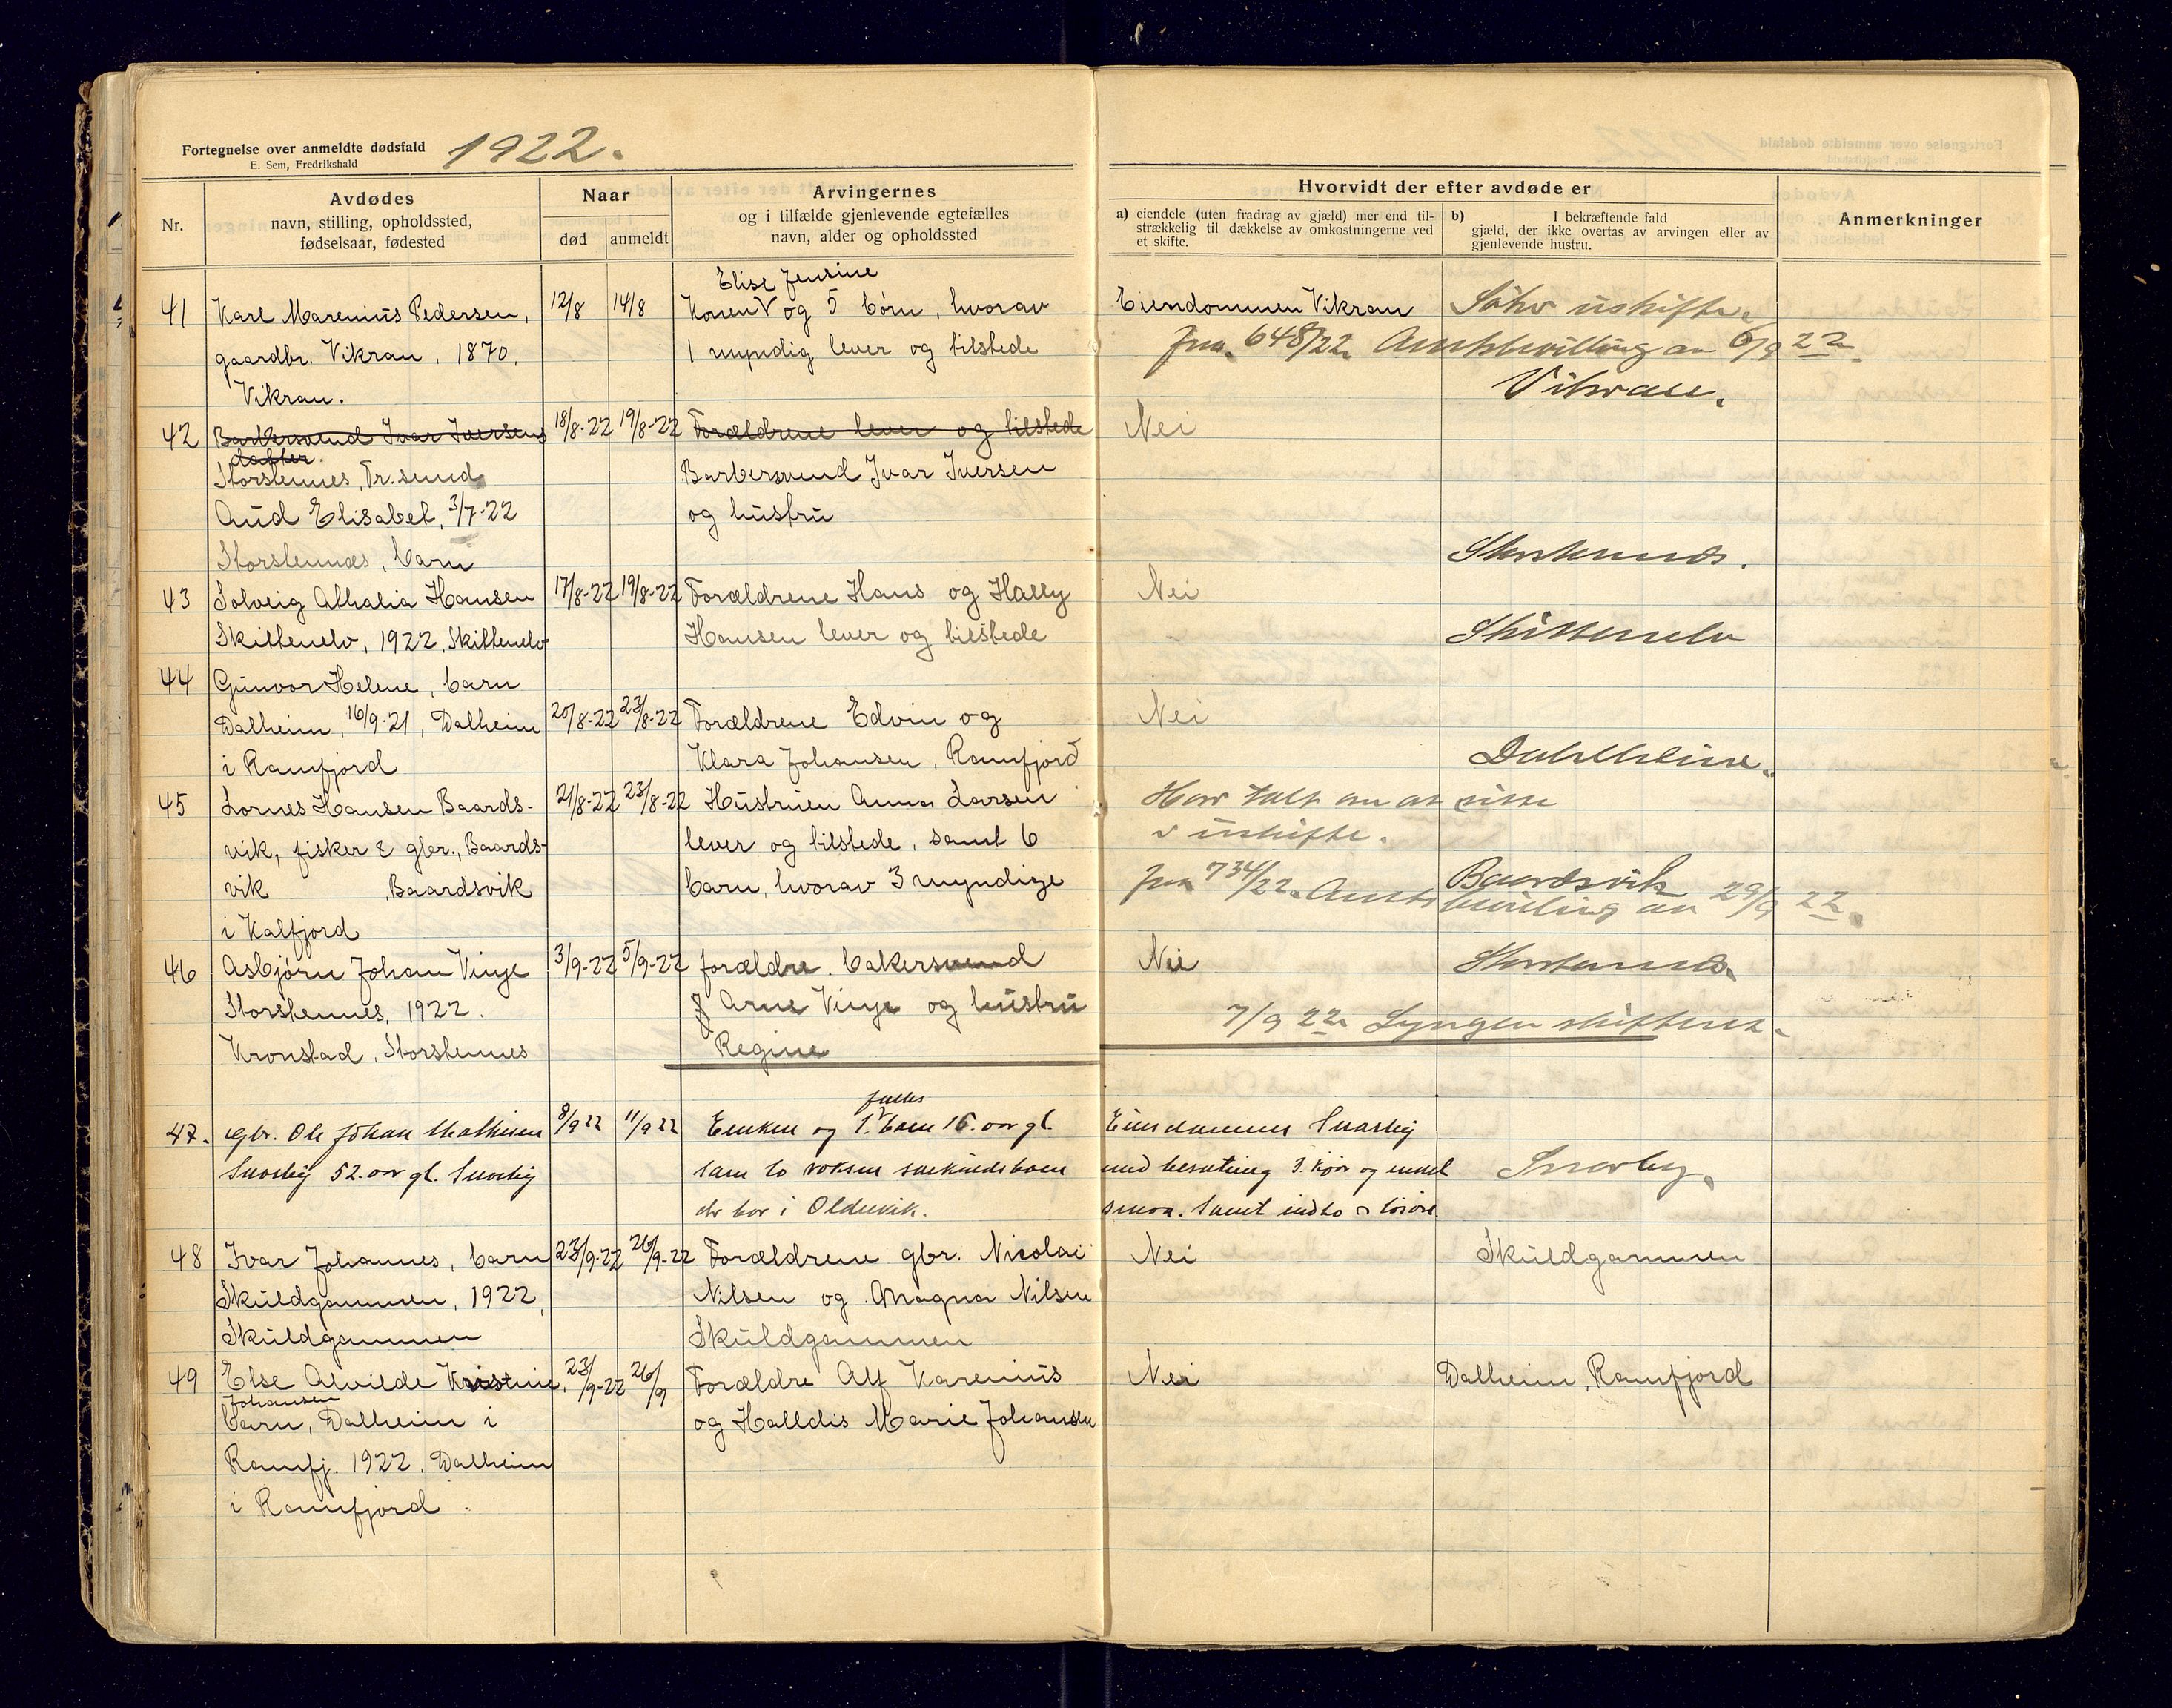 Fortegnelse over anmeldte dødsfald 1922.
E. Sem, Fredrikshald
Nr.
Avdødes
navn, stilling, opholdssted,
fødselsaar, fødested
Naar
død
anmeldt
Arvingernes
og i tilfælde gjenlevende egtefælles
navn, alder og opholdssted
Hvorvidt der efter avdøde er
a) eiendele (uten fradrag av gjæld) mer end til-
strækkelig til dækkelse av omkostningerne ved
et skifte.
b) I bekræftende fald
gjæld, der ikke overtas av arvingen eller av
gjenlevende hustru.
Anmerkninger
41 Karl Marenius Pedersen, 12/8 14/8
gaardbr. Vikran, 1870,
Vikran.
Elise Jensine
Konen V og 5 børn, hvorav
1 myndig lever og tilstede
Eiendommen Vikran
uskifte.
Jnr. 648/22 Amtsbevilling av 6/9 22.
Vikran.
42 Barbersvend Ivar Iversens 18/8-22 19/8-22
datter
Storstennes, Tr.sund
Aud Elisabet, 3/7-22
Storstennes, barn
Forældrene lever og tilstede
Barbersvend Ivar Iversen
og hustru
Nei
Storstennes.
43 Solveig Athalia Hansen 17/8-22 19/8-22
Skittenelv, 1922, Skittenelv
Forældrene Hans og Hally
Hansen lever og tilstede
Nei
Skittenelv
44 Gunvor Helene, barn
Dalheim, 16/9-21, Dalheim 20/8-22 23/8-22
i Ramfjord
Forældrene Edvin og
Klara Johansen, Ramfjord
Nei
Dahlheim.
45 Lornes Hansen Baards- 21/8-22 23/8-22
vik, fisker & gbr., Baards-
vik, Baardsvik
i Kalfjord
Hustruen Anna Larsen
lever og tilstede, samt 6
barn, hvorav 3 myndige
Har talt om at sitte
i uskifte.
Jnr 734/22. Amtsbevilling av 29/9 22.
Baardsvik
46 Asbjørn Johan Vinje 3/9-22 5/9-22
Storstennes, 1922.
Kronstad, Storstennes
forældre. bakersvend
Arne Vinje og hustru
Regine
Nei
Storstennes.
7/9 22 Lyngen skifteret.
47. Gbr. Ole Johan Mathisen 8/9 22 11/9 22
Snarby 52. aar gl. Snarby
fælles
Enken og 1. V barn 15. aar gl.
sam to voksne særkuldsbarn
der bor i Oldervik.
Eiendommen Snarby
med besetning 3. kjør og endel
smaa. Samt indbo & løsøre.
Snarby.
48 Ivar Johannes, barn 23/9-22 26/9-22
Skuldgammen, 1922,
Skuldgammen
Forældrene gbr. Nicolai
Nilsen og Magna Nilsen
Skuldgammen
Nei
Skuldgammen
49 Else Alvilde Kristine, 23/9-22 26/9
Johansen
barn, Dalheim i
Ramfj. 1922, Dalheim
i Ramfjord.
Forældre Alf Karenius
og Halldis Marie Johansen
Nei
Dalheim, Ramfjord